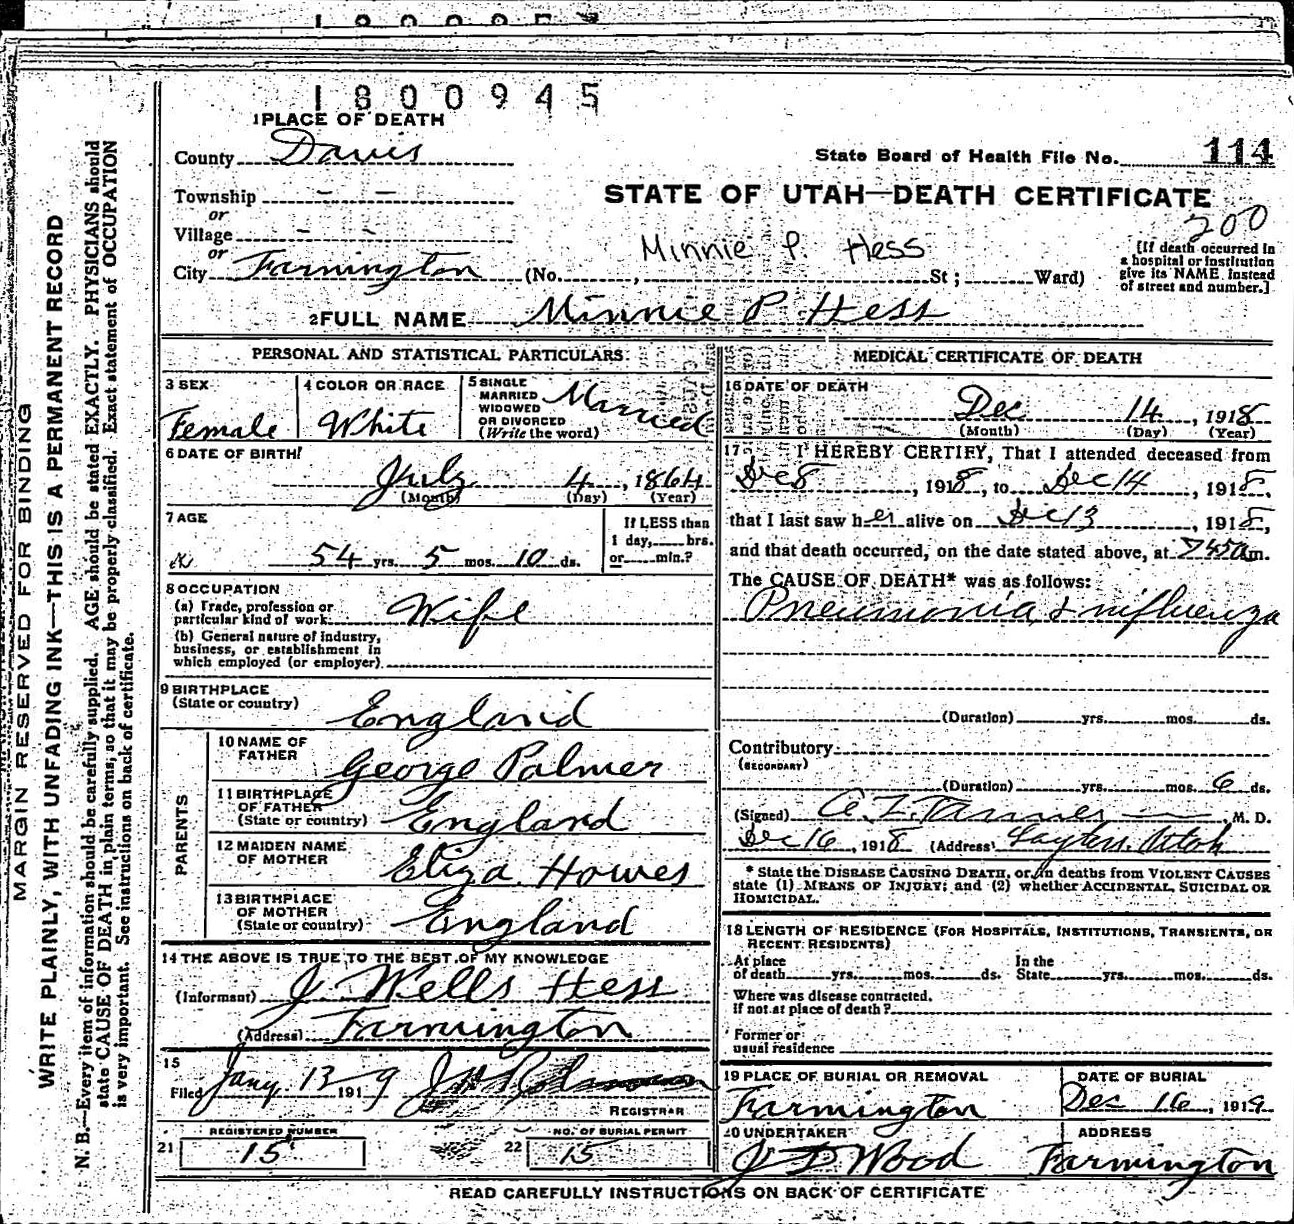 1800945
1 PLACE OF DEATH
County Davis
State Board of Health File No. 114
Township — —
STATE OF UTAH—DEATH CERTIFICATE
or
200
Village — —
or
Minnie P. Hess
City Farmington (No. , St; Ward)
[If death occurred in
a hospital or institution
give its NAME instead
of street and number.]
2 FULL NAME Minnie P Hess
PERSONAL AND STATISTICAL PARTICULARS
3 SEX
Female
4 COLOR OR RACE
White
5 SINGLE
MARRIED
WIDOWED
OR DIVORCED
(Write the word)
Married
6 DATE OF BIRTH
July 4, 1864
(Month) (Day) (Year)
7 AGE
54 yrs. 5 mos. 10 ds.
If LESS than
1 day, hrs.
or min.?
8 OCCUPATION
(a) Trade, profession or
particular kind of work. Wife
(b) General nature of industry,
business, or establishment in
which employed (or employer)
9 BIRTHPLACE
(State or country) England
PARENTS
10 NAME OF
FATHER George Palmer
11 BIRTHPLACE
OF FATHER
(State or country) England
12 MAIDEN NAME
OF MOTHER Eliza Howes
13 BIRTHPLACE
OF MOTHER
(State or country) England
14 THE ABOVE IS TRUE TO THE BEST OF MY KNOWLEDGE
(Informant) J Wells Hess
(Address) Farmington
15
Filed Jany. 13 1919
REGISTRAR
REGISTERED NUMBER
21 15
NO. OF BURIAL PERMIT
22 15
MEDICAL CERTIFICATE OF DEATH
16 DATE OF DEATH
Dec 14, 1918
(Month) (Day) (Year)
17 I HEREBY CERTIFY, That I attended deceased from
Dec 8, 1918, to Dec 14, 1918,
that I last saw her alive on Dec 13, 1918,
and that death occurred, on the date stated above, at 745am.
The CAUSE OF DEATH* was as follows:
Pneumonia & influenza
(Duration) yrs. mos. ds.
Contributory
(SECONDARY)
(Duration) yrs. mos. 6 ds.
(Signed) A. Z. Tanner, M. D.
Dec 16, 1918 (Address) Layton, Utah
* State the DISEASE CAUSING DEATH, or, in deaths from VIOLENT CAUSES
state (1) MEANS OF INJURY; and (2) whether ACCIDENTAL, SUICIDAL OR
HOMICIDAL.
18 LENGTH OF RESIDENCE (FOR HOSPITALS, INSTITUTIONS, TRANSIENTS, OR
RECENT RESIDENTS)
At place In the
of death yrs. mos. ds. State yrs. mos. ds.
Where was disease contracted,
if not at place of death?
Former or
usual residence
19 PLACE OF BURIAL OR REMOVAL
Farmington
DATE OF BURIAL
Dec 16, 1919
20 UNDERTAKER
J D Wood
ADDRESS
Farmington
READ CAREFULLY INSTRUCTIONS ON BACK OF CERTIFICATE
MARGIN RESERVED FOR BINDING
WRITE PLAINLY, WITH UNFADING INK—THIS IS A PERMANENT RECORD
N. B.—Every item of information should be carefully supplied. AGE should be stated EXACTLY. PHYSICIANS should
state CAUSE OF DEATH in plain terms, so that it may be properly classified. Exact statement of OCCUPATION
is very important. See instructions on back of certificate.